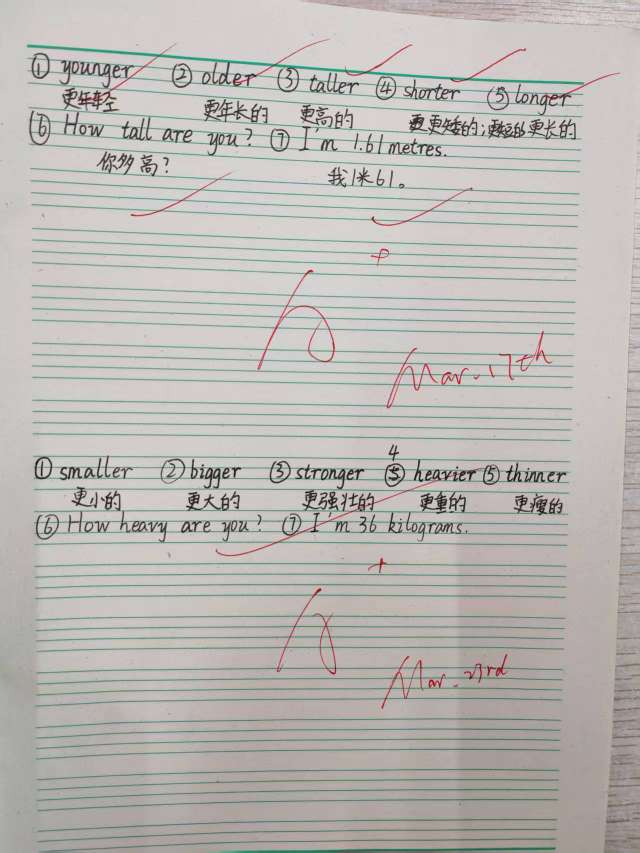 ① younger ② older ③ taller ④ shorter ⑤ longer
更年轻 更年长的 更高的 更矮的；更短的 更长的
⑥ How tall are you? ⑦ I'm 1.61 metres.
你多高？ 我1米61。
A+
Mar. 17th
4
① smaller ② bigger ③ stronger ⑤ heavier ⑤ thinner
更小的 更大的 更强壮的 更重的 更瘦的
⑥ How heavy are you? ⑦ I'm 36 kilograms.
A+
Mar. 23rd